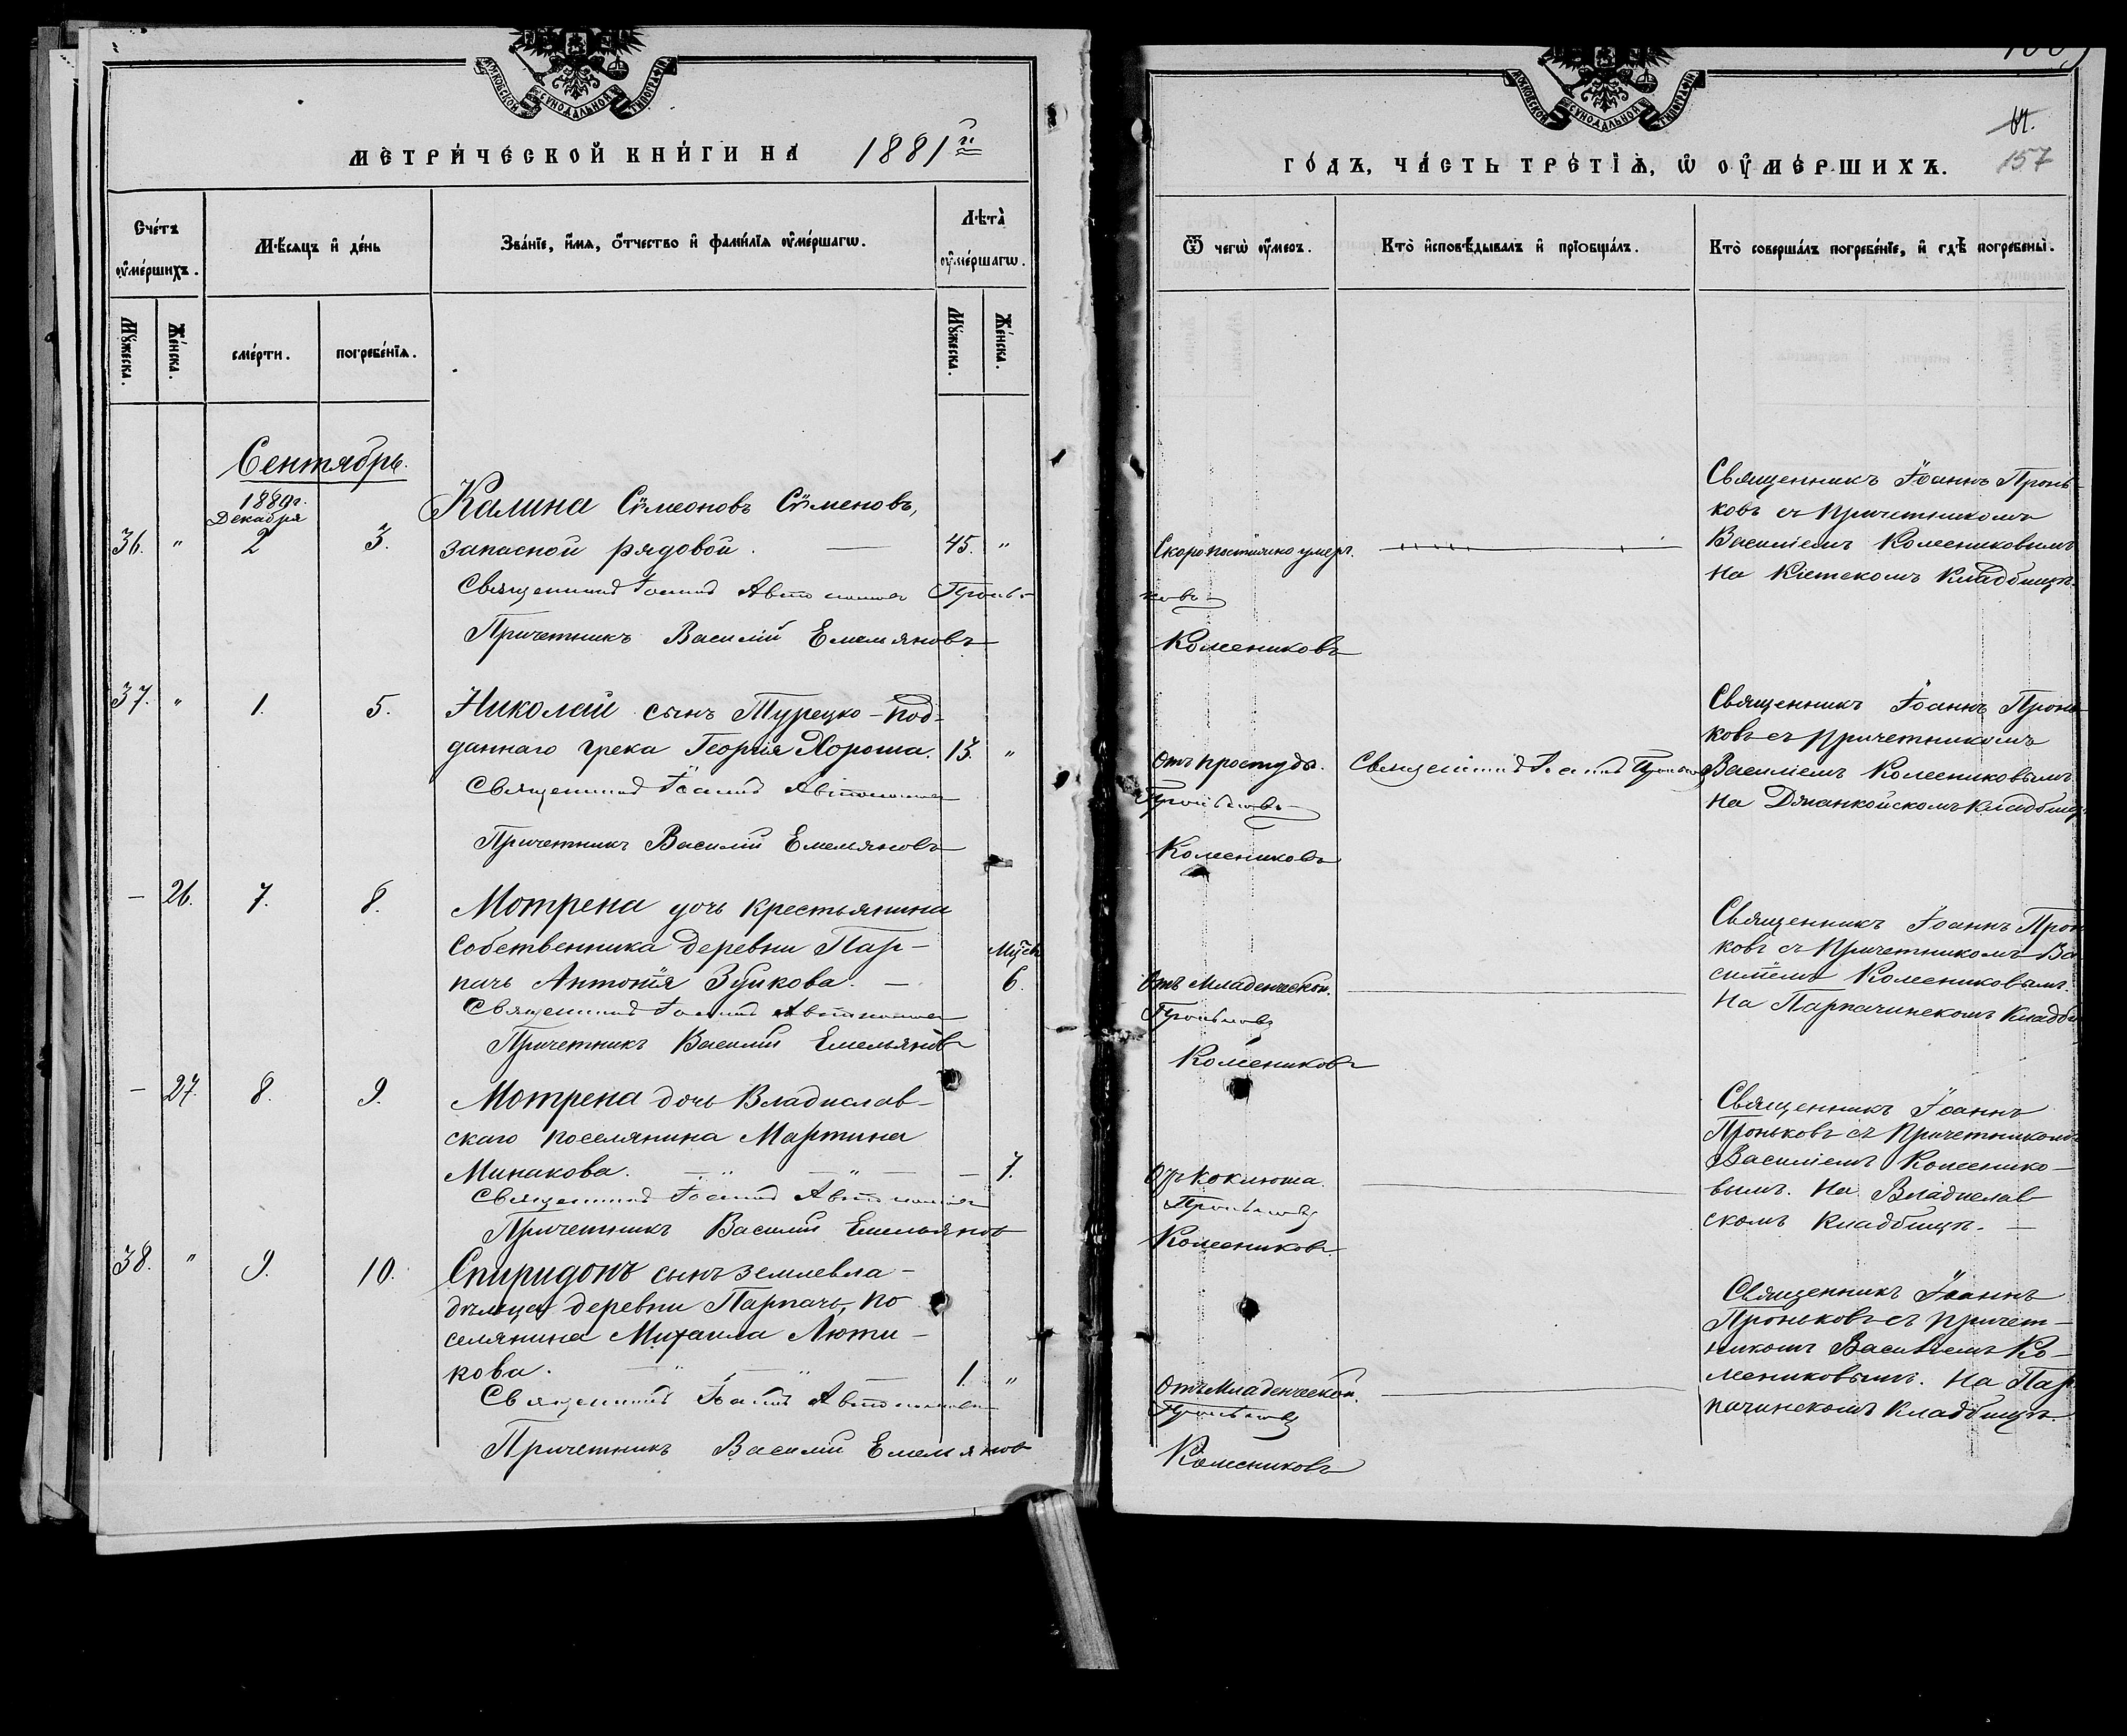 МОСКОВСКОЙ СѴНОДАЛЬНОЙ ТИПОГРАФІИ
МЕТРИ́ЧЕСКОЙ КНИ́ГИ НА 1881 й
Сче́тъ ᲂу҆ме́ршихъ.
Мѣ́сяцъ и҆ де́нь
Зва́нїе, и҆́мѧ, ѻ҆́тчество и҆ фами́лїѧ ᲂу҆ме́ршагѡ.
Лѣта̀ ᲂу҆ме́ршагѡ.
Мꙋ́жеска.
Же́нска.
сме́рти.
погребе́нїѧ.
Мꙋ́жеска.
Же́нска.
Сентябрь.
1880г.
Декабря
36. " 2 3.
Калина Сѵмеоновъ Сѵменовъ,
запасной рядовой. — 45. "
Священникъ Іоаннъ Автономовъ Пронь-
Причетникъ Василій Емельяновъ
37. " 1. 5.
Николай сынъ Турецко-под-
даннаго грека Георгія Хороша. 13. "
Священникъ Іоаннъ Автономовъ
Причетникъ Василій Емельяновъ
— 26. 7. 8.
Мотрена дочь крестьянина
собственника деревни Пар-
пачъ Антонія Зуйкова. — 6.
Священникъ Іоаннъ Автономовъ
Причетникъ Василій Емельяновъ
— 27. 8. 9.
Мотрена дочь Владислав-
скаго поселянина Мартина
Минакова. — " — " — — 7.
Священникъ Іоаннъ Автономовъ
Причетникъ Василій Емельяновъ
38. " 9. 10.
Спиридонъ сынъ землевла-
дѣльца деревни Парпачъ, по
селянина Михаила Люти-
кова. — " — " — 1. "
Священникъ Іоаннъ Автономовъ
Причетникъ Василій Емельяновъ
МОСКОВСКОЙ СѴНОДАЛЬНОЙ ТИПОГРАФІИ
157
ГО́ДЪ, ЧА́СТЬ ТРЕ́ТЇѦ, Ѡ҆ ОУ҆МЕ́РШИХЪ.
Ѿ чегѡ̀ ᲂу҆́меръ.
Кто̀ и҆сповѣ́дывалъ и҆ прїобща́лъ.
Кто̀ соверша́лъ погребе́нїе, и҆ гдѣ̀ погребены̀.
Скоропостижно умеръ.
ковъ
Колесниковъ
Священникъ Іоаннъ Пронь-
ковъ съ причетникомъ
Василіемъ Колесниковымъ
На Кіетскомъ Кладбищѣ.
Отъ простуды.
Проньковъ
Колесниковъ
Священникъ Іоаннъ Проньковъ
Священникъ Іоаннъ Пронь-
ковъ съ причетникомъ
Василіемъ Колесниковымъ.
На Джанкойскомъ кладбищ.
Отъ Младенческой.
Проньковъ
Колесниковъ
Священникъ Іоаннъ Прон
ковъ съ Причетникомъ Ва
силіемъ Колесниковымъ.
На Парпачинскомъ Кладби
Отъ Коклюша.
Проньковъ
Колесниковъ
Священникъ Іоаннъ
Проньковъ съ Причетникомъ
Василіемъ Колеснико-
вымъ. На Владислав-
скомъ Кладбищѣ. —
Отъ Младенческой.
Проньковъ
Колесниковъ
Священникъ Іоаннъ
Проньковъ съ причет-
никомъ Василіемъ Ко-
лесниковымъ. На Пар
пачинскомъ Кладбищѣ.